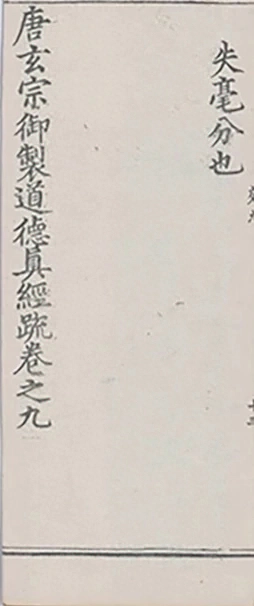 失毫分也
唐玄宗御製道德真經疏卷之九